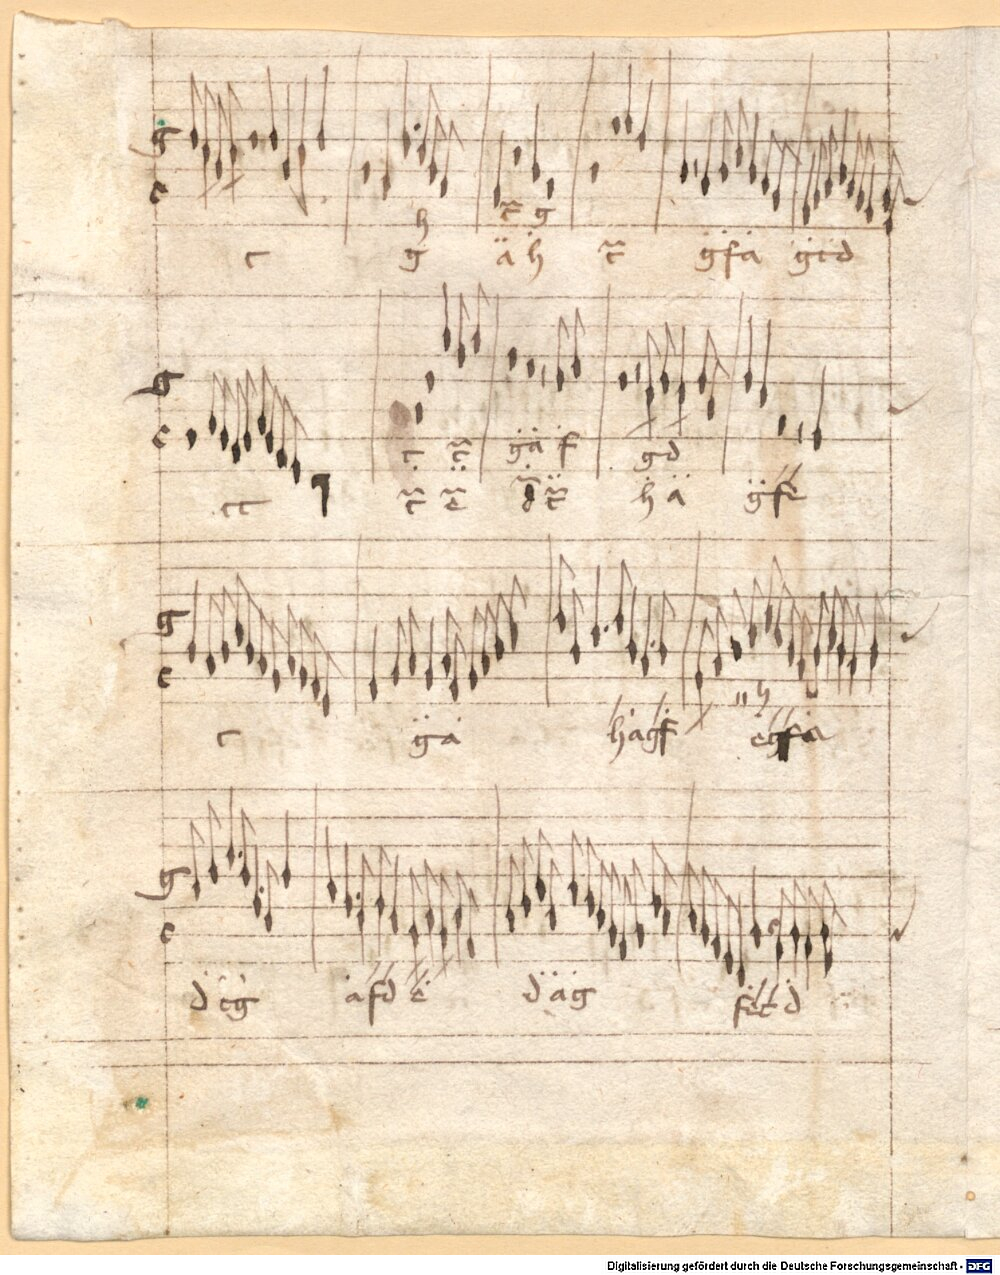 g
c
h c̄ g
c g ä h c̄ g f a g c d
g
c
c c̄ g a f g d
c c c̄ ē d̄ c̄ h a g f e
g
c
h
c g a h a g f e g f a
g
c
d c g a f d e d a g f e c d
Digitalisierung gefördert durch die Deutsche Forschungsgemeinschaft - DFG